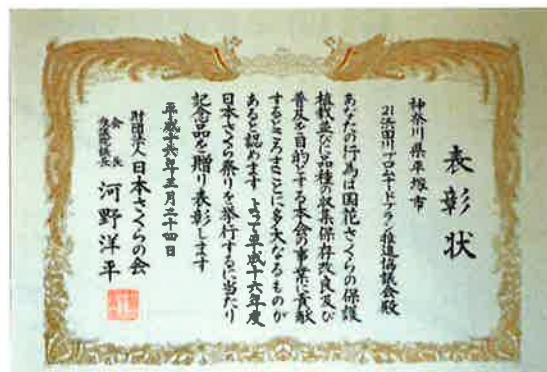 表彰状
神奈川県平塚市
21渋田川プロムナードプラン推進協議会殿
あなたの行為は国花さくらの保護
植栽並びに品種の収集保存改良及び
普及を目的とする本会の事業に貢献
するところまことに多大なるものが
あると認めます よって平成十六年度
日本さくら祭りを挙行するに当たり
記念品を贈り表彰します
平成十六年三月二十四日
財団法人日本さくらの会
会長
衆議院議長
河野洋平